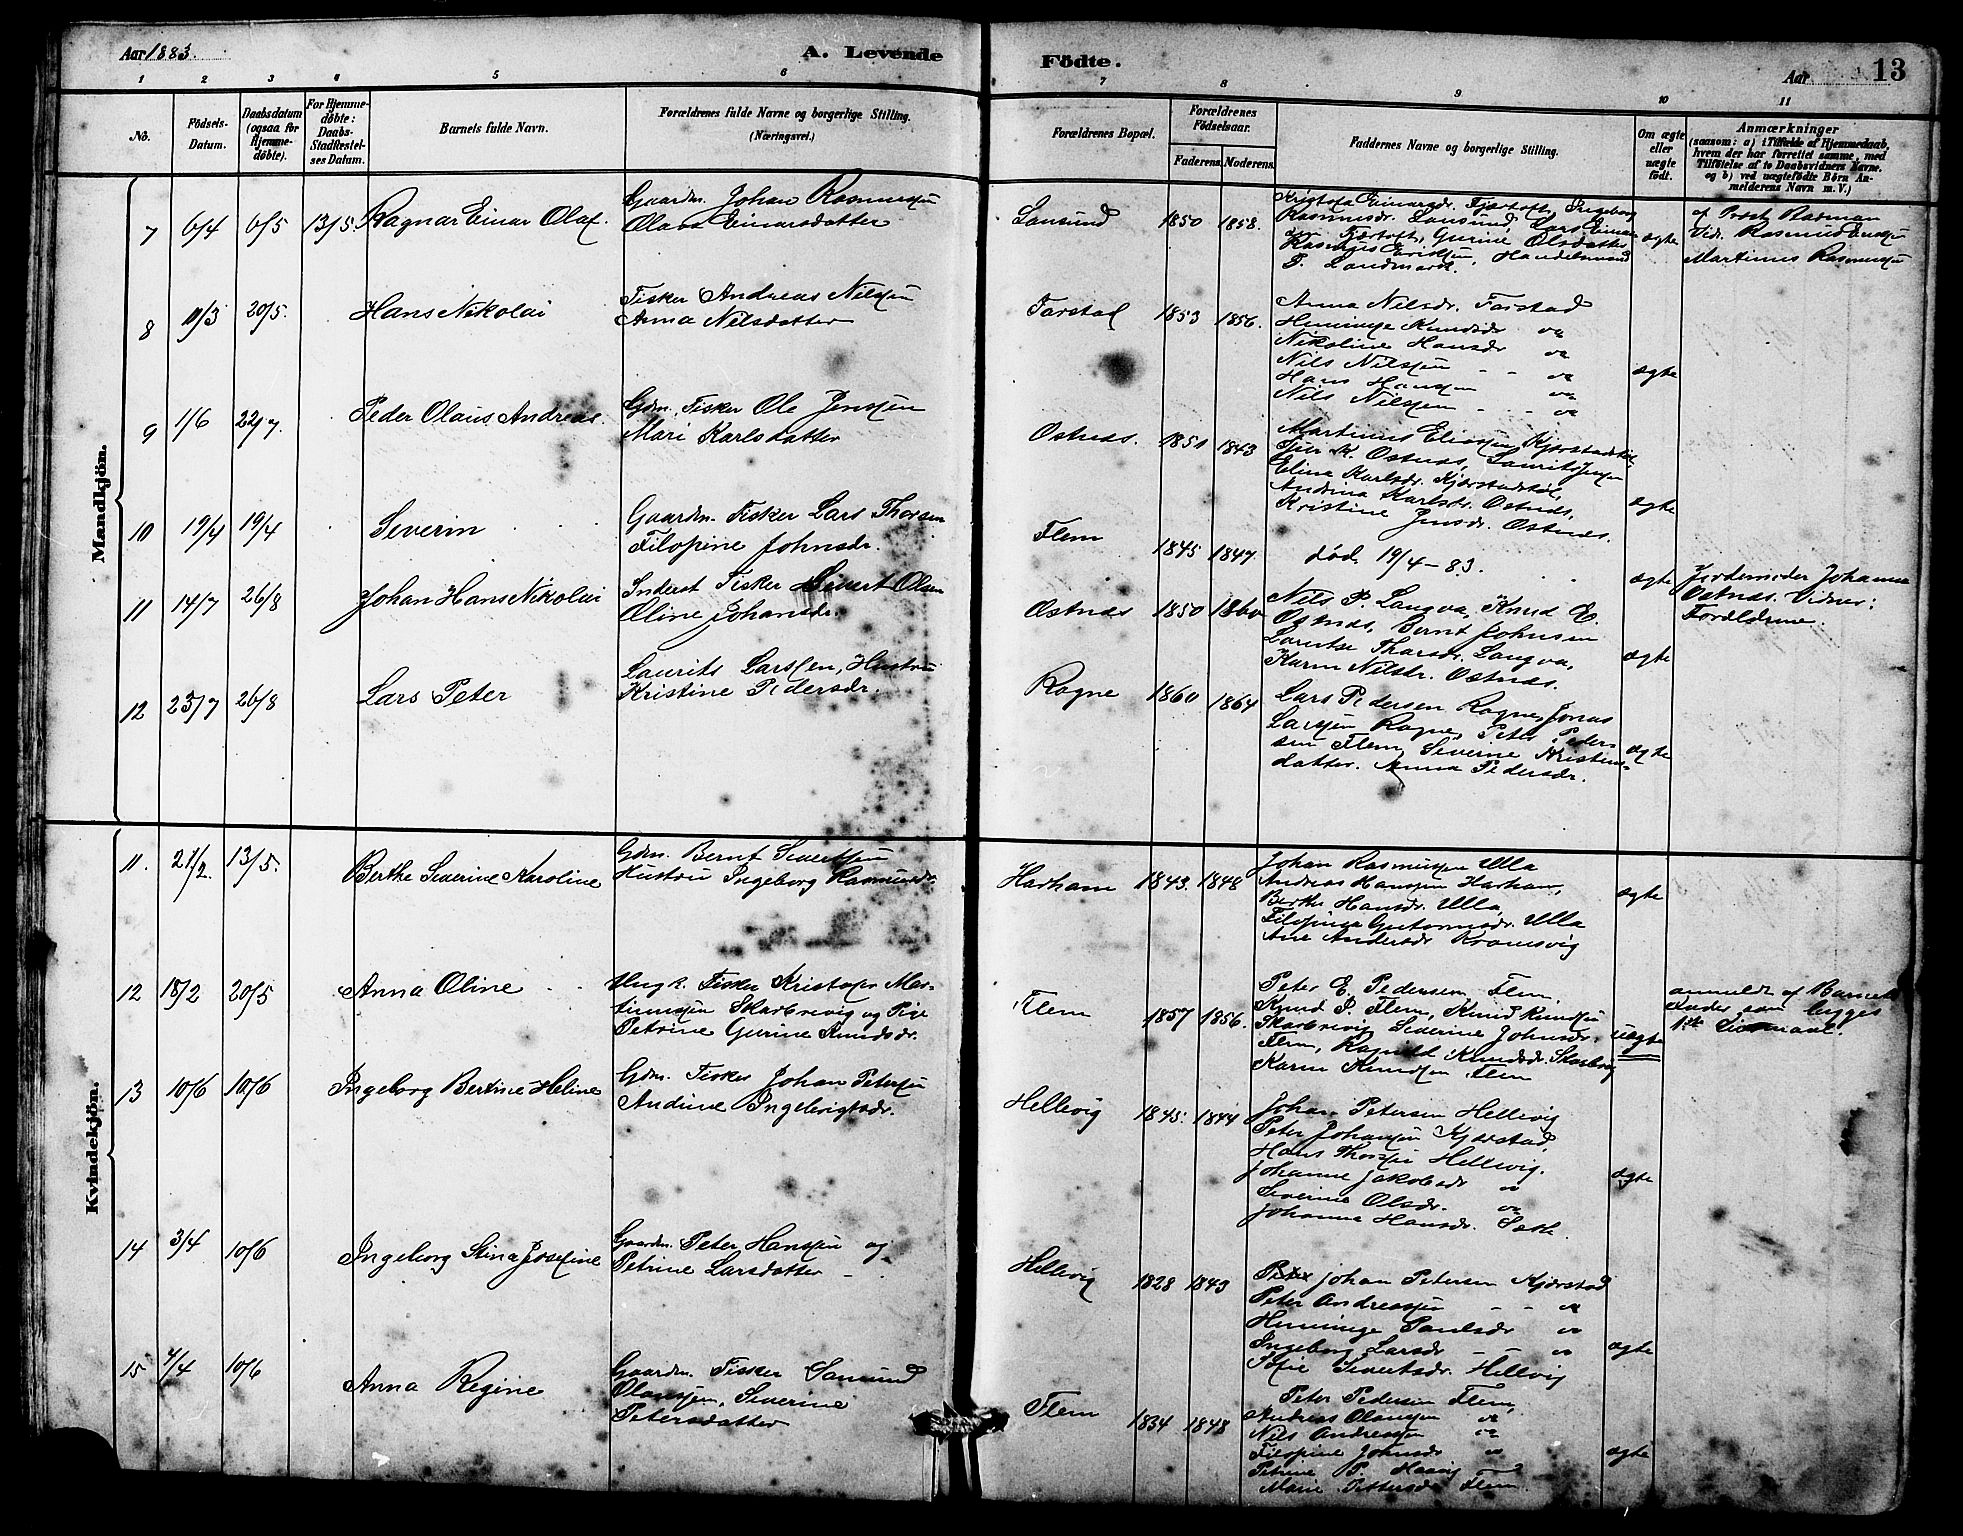 Aar 1883.
A. Levende Födte.
Aar
13
1 2 3 4 5 6 7 8 9 10 11
No.
Födsels-Datum.
Daabsdatum (ogsaa for Hjemme-döbte).
For Hjemme-döbte: Daabs-Stadfæstel-ses Datum.
Barnets fulde Navn.
Forældrenes fulde Navne og borgerlige Stilling. (Næringsvei.)
Forældrenes Bopæl.
Forældrenes Födselsaar.
Faderens. Moderens.
Faddernes Navne og borgerlige Stilling.
Om ægte eller uægte födt.
Anmærkninger
(saasom: a) i Tilfælde af Hjemmedaab, hvem der har forrettet samme, med Tilföielse af to Daabsvidners Navne. og b) ved uægtefödte Börn Anmelderens Navn m. V.)
Mandkjön.
7 6/4 6/5 13/5 Ragnar Einar Olaf.
Gaardm. Johan Rasmussen
Olava Einarsdatter
Lansund 1850 1858.
Rasmusdr. Lansund, Lars Einar
Gurine Olsdatter
Rasmus Eriksen, Handelsmand
P. Landmark.
ægte
af Prost Rasman
Vid. Rasmus
Martinus Rasmussen
8 11/3 20/5. Hans Nikolai
Fisker Andreas Nilssen
Anna Nilsdatter
Farstad 1853 1856.
Anna Nilsdr. Farstad
Henninge Knudsdr "
Nikoline Hansdr "
Nils Nilssen - - "
Hans Hanssen "
Nils Nilssen - - "
ægte
9 1/6 22/7. Peder Olaus Andreas.
Gdm. Fisker Ole Jenssen
Mari Karlsdatter
Ostnæs. 1851 1843
Martinus Eliassen Kjærstad
Ostnæs, Laurits Jensen
Elina Karlsdr. Kjærstad
Andrina Karlsdr. Ostnæs,
Kristine Jensdr. Ostnæs.
ægte
10 19/4 19/4 Severin
Gaardm. Fisker Lars Thorsen
Filopine Johnsdr.
Flem 1845 1847
død 19/4 - 83.
ægte
Jordemoder Johanne
Ostnæs. Vidner:
Forældrene.
11 14/7 26/8 Johan Hans Nikolai
Inderst Fisker Sivert Olsen
Oline Johansdr.
Ostnæs 1850 1860
Nils P. Langva, Knud E.
Ostnæs, Bernt Johnsen
Lauritse Thorsdr. Langva,
Karen Nilsdr. Ostnæs.
ægte
12 23/7 26/8 Lars Peter
Laurits Larssen, Hustru
Kristine Pedersdr.
Rogne 1860 1864
Lars Pedersen Rogne, Jonas
Larssen Rogne, Peter Peder-
sen Flem, Severine Kristens-
datter. Anna Pedersdr.
ægte
Kvindekjön.
11. 21/2. 13/5. Berthe Severine Karoline
Gdm. Bernt Sivertsen
Hustru Ingeborg Rasmusdr.
Harham 1843. 1848
Johan Rasmussen Ulla
Andreas Hanssen Harham,
Berthe Hansdr. Ulla
Filopine Guttormsdr. Ulla
Ane Andersdr Kromsvig
ægte
12 18/2 20/5 Anna Oline
Ungk. Fisker Kristofer Mar-
tinussen Skarbrevig og Pige
Petrine Gurine Knudsdr.
Flem 1857 1856.
Peter E. Pedersen Flem.
Knud P. Flem, Knud Knudsen
Skarbrevig Severine Johnsdr.
Flem, Ragnild Knudsdr. Skarbrevig
Karen Knudsen Flem
uægte
anmeldt af Barnets
Fader som begges
1ste Leiermaal.
13 10/6 10/6 Ingeborg Bertine Heline
Gdm. Fisker Johan Petersen
Andrine Ingebrigtsdr.
Hellevig 1845. 1844
Johan Petersen Hellevig
Peter Johansen Kjærstad
Hans Thorssen Hellevig.
Johanne Jakobsdr "
Severine Olsdr. "
Johanna Hansdr. Sæth.
ægte
14 3/4 10/6 Ingeborg Stina Josefine
Gaardm. Peter Hanssen og
Petrine Larsdatter -
Hellevig 1828 1843
Johan Petersen Kjærstad
Peter Andreassen - - "
Henninge Paulsdr "
Ingeborg Larsdr - - "
Sofie Sivertsdr. Hellvig
ægte
15 4/4 10/6 Anna Regine
Gaardm. Fisker Samund
Olaussen, Severine
Petersdatter
Flem 1834 1848
Peter Pedersen Flem,
Andreas Olaussen "
Nils Andreassen "
Filopine Johnsdr "
Petrine P. Haavig
Marie Pettersdr Flem.
ægte